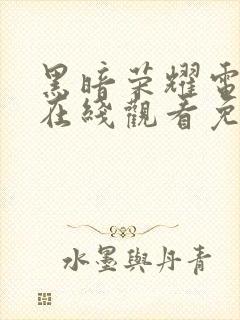 黑暗荣耀電
在綫觀看免
水墨與丹青